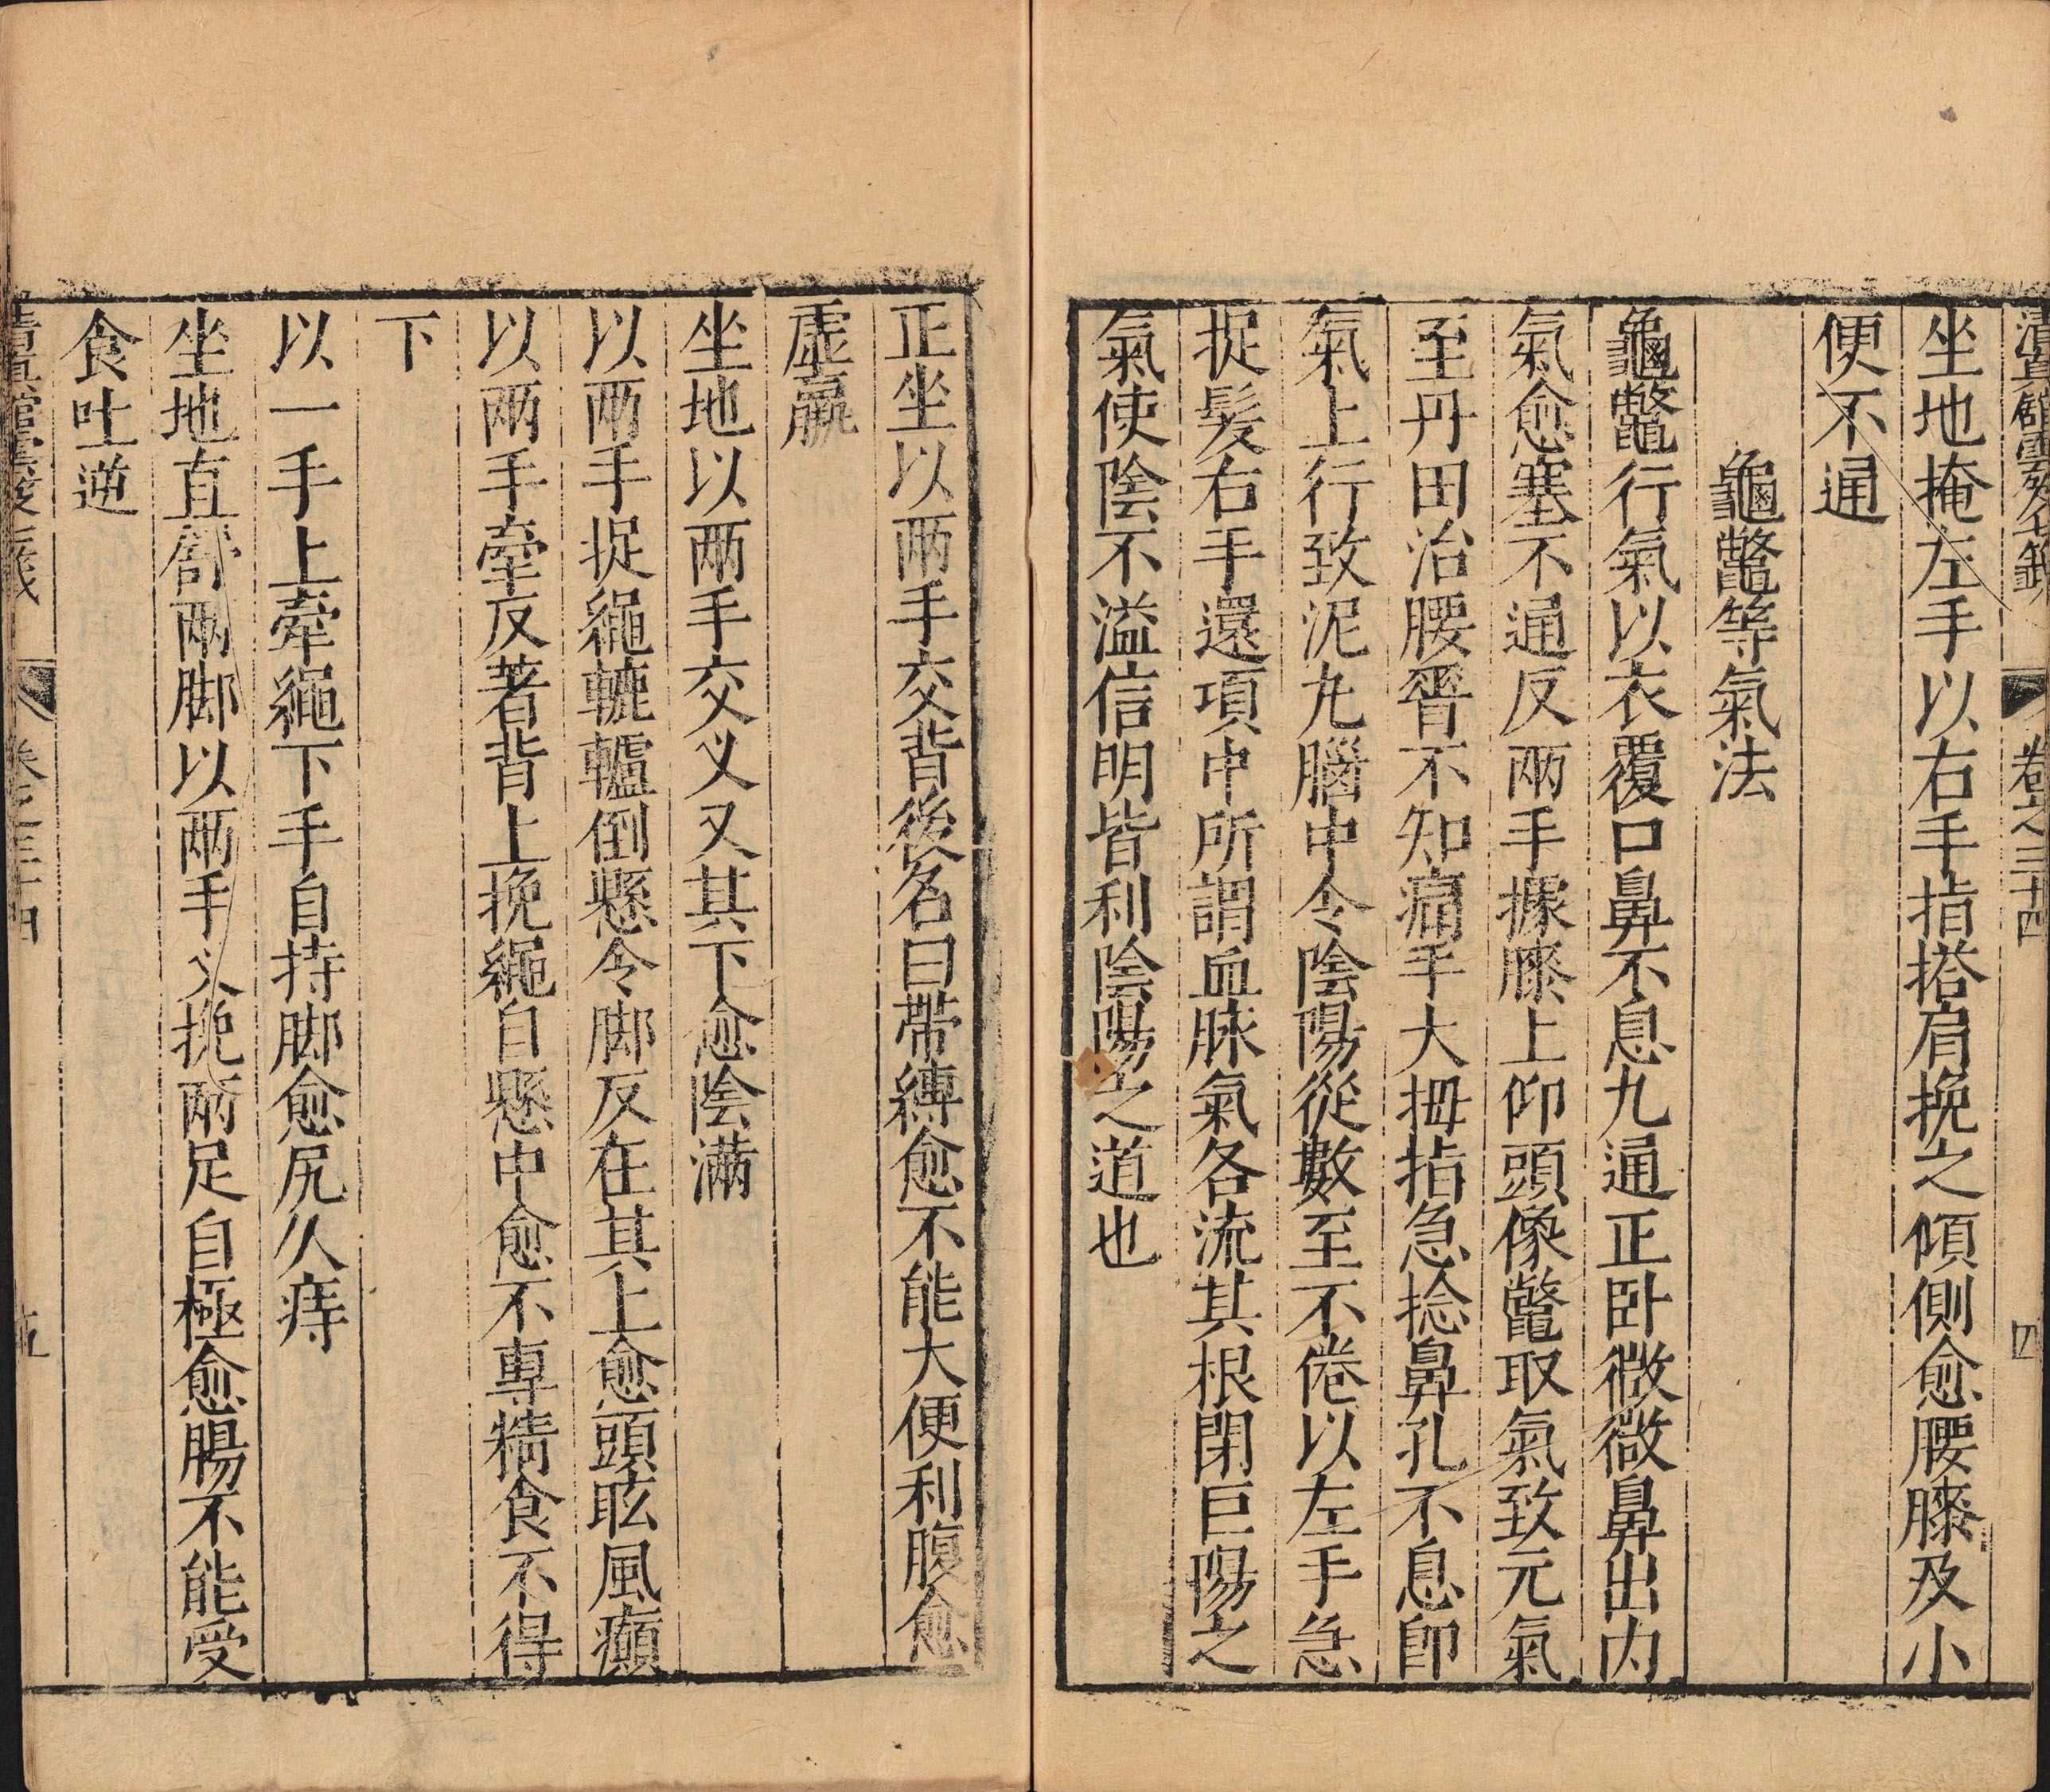 清真館雲笈七籤 卷之三十四 四
坐地掩左手以右手指搭肩挽之傾側愈腰膝及小
便不通
龜鼈等氣法
龜鼈行氣以衣覆口鼻不息九通正卧微微鼻出内
氣愈塞不通反兩手據膝上仰頭像鼈取氣致元氣
至丹田治腰脊不知痛手大拇指急捻鼻孔不息即
氣上行致泥丸腦中令陰陽從數至不倦以左手急
捉髮右手還項中所謂血脉氣各流其根閉巨陽之
氣使陰不溢信明皆利陰陽之道也
正坐以兩手交背後名曰帶縛愈不能大便利腹愈
虛羸
坐地以兩手交义又其下愈陰滿
以兩手捉繩轆轤倒懸令脚反在其上愈頭眩風癲
以兩手牽反著背上挽繩自懸中愈不專精食不得
下
以一手上牽繩下手自持脚愈尻久痔
坐地直舒兩脚以兩手叉挽兩足自極愈腸不能受
食吐逆
清真館雲笈七籤 卷之三十四 五